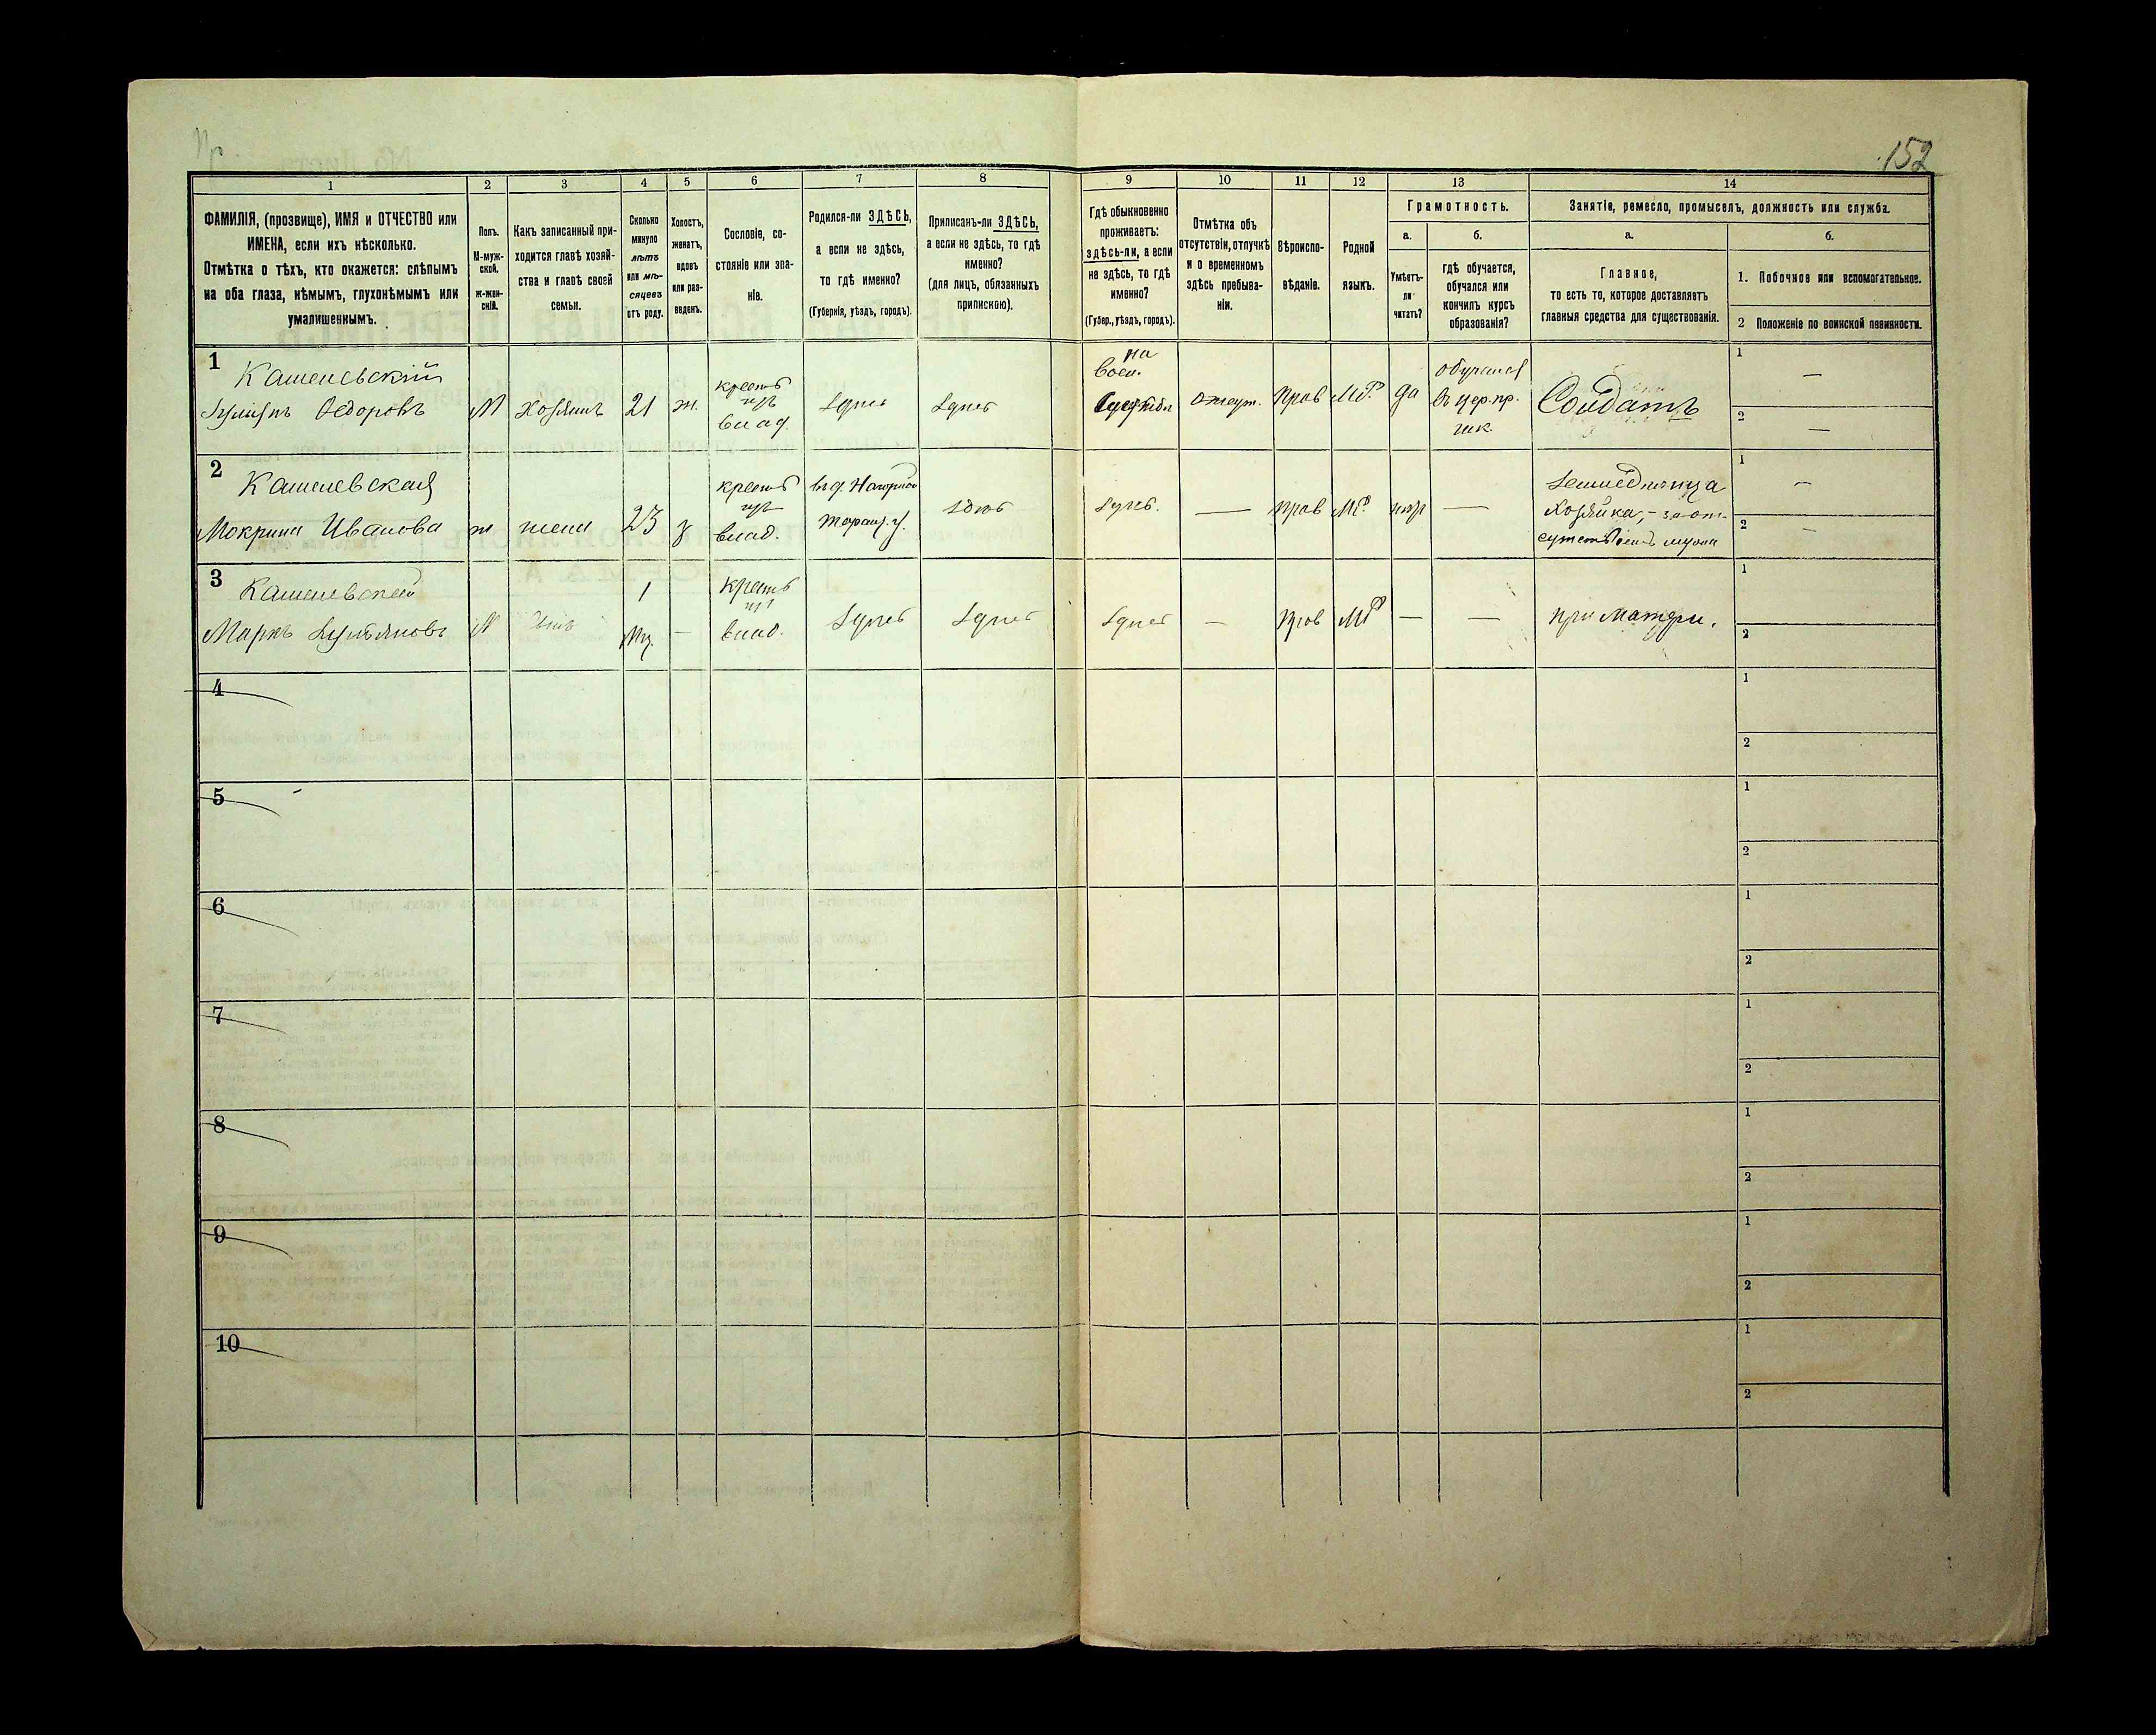 152
1
2
3
4
5
6
7
8
9
10
11
12
13
14
ФАМИЛІЯ, (прозвище), ИМЯ и ОТЧЕСТВО или
ИМЕНА, если ихъ нѣсколько.
Отмѣтка о тѣхъ, кто окажется: слѣпымъ
на оба глаза, нѣмымъ, глухонѣмымъ или
умалишеннымъ.
Полъ.
М-муж-
ской.
ж-жен-
скій.
Какъ записанный при-
ходится главѣ хозяй-
ства и главѣ своей
семьи.
Сколько
минуло
лѣтъ
или мѣ-
сяцевъ
отъ роду.
Холостъ,
женатъ,
вдовъ
или раз-
веденъ.
Сословіе, со-
стояніе или зва-
ніе.
Родился-ли ЗДѢСЬ,
а если не здѣсь,
то гдѣ именно?
(Губернія, уѣздъ, городъ).
Приписанъ-ли ЗДѢСЬ,
а если не здѣсь, то гдѣ
именно?
(для лицъ, обязанныхъ
припискою).
Гдѣ обыкновенно
проживаетъ:
здѣсь-ли, а если
не здѣсь, то гдѣ
именно?
(Губер., уѣздъ, городъ).
Отмѣтка объ
отсутствіи, отлучкѣ
и о временномъ
здѣсь пребыва-
ніи.
Вѣроиспо-
вѣданіе.
Родной
языкъ.
Грамотность.
а.
Умѣетъ-
ли
читать?
б.
гдѣ обучается,
обучался или
кончилъ курсъ
образованія?
Занятіе, ремесло, промыселъ, должность или служба.
а.
Главное,
то есть то, которое доставляетъ
главныя средства для существованія.
б.
1. Побочное или вспомогательное.
2 Положеніе по воинской повинности.
1
Кашевскій
Ѳедоровъ
М
хозяинъ
21
ж.
крест
изъ
влад.
Здѣсь
Здѣсь
на
воен.
службѣ
отсут.
прав
МР.
да
обучался
въ цер. пр.
шк.
Солдатъ
1
—
2
—
2
Мокрина Иванова
ж
жена
23
з
крест
изъ
влад.
Здѣсь
Здѣсь.
—
прав
МР.
—
Земледѣлица
Хозяйка, - за от-
сутствіемъ мужа
1
—
2
—
3
Маркъ
М
сынъ
1
мц.
—
крест
изъ
влад.
Здѣсь
Здѣсь
Здѣсь
—
прав
МР
—
—
при матери.
1
2
4
1
2
5
1
2
6
1
2
7
1
2
8
1
2
9
1
2
10
1
2